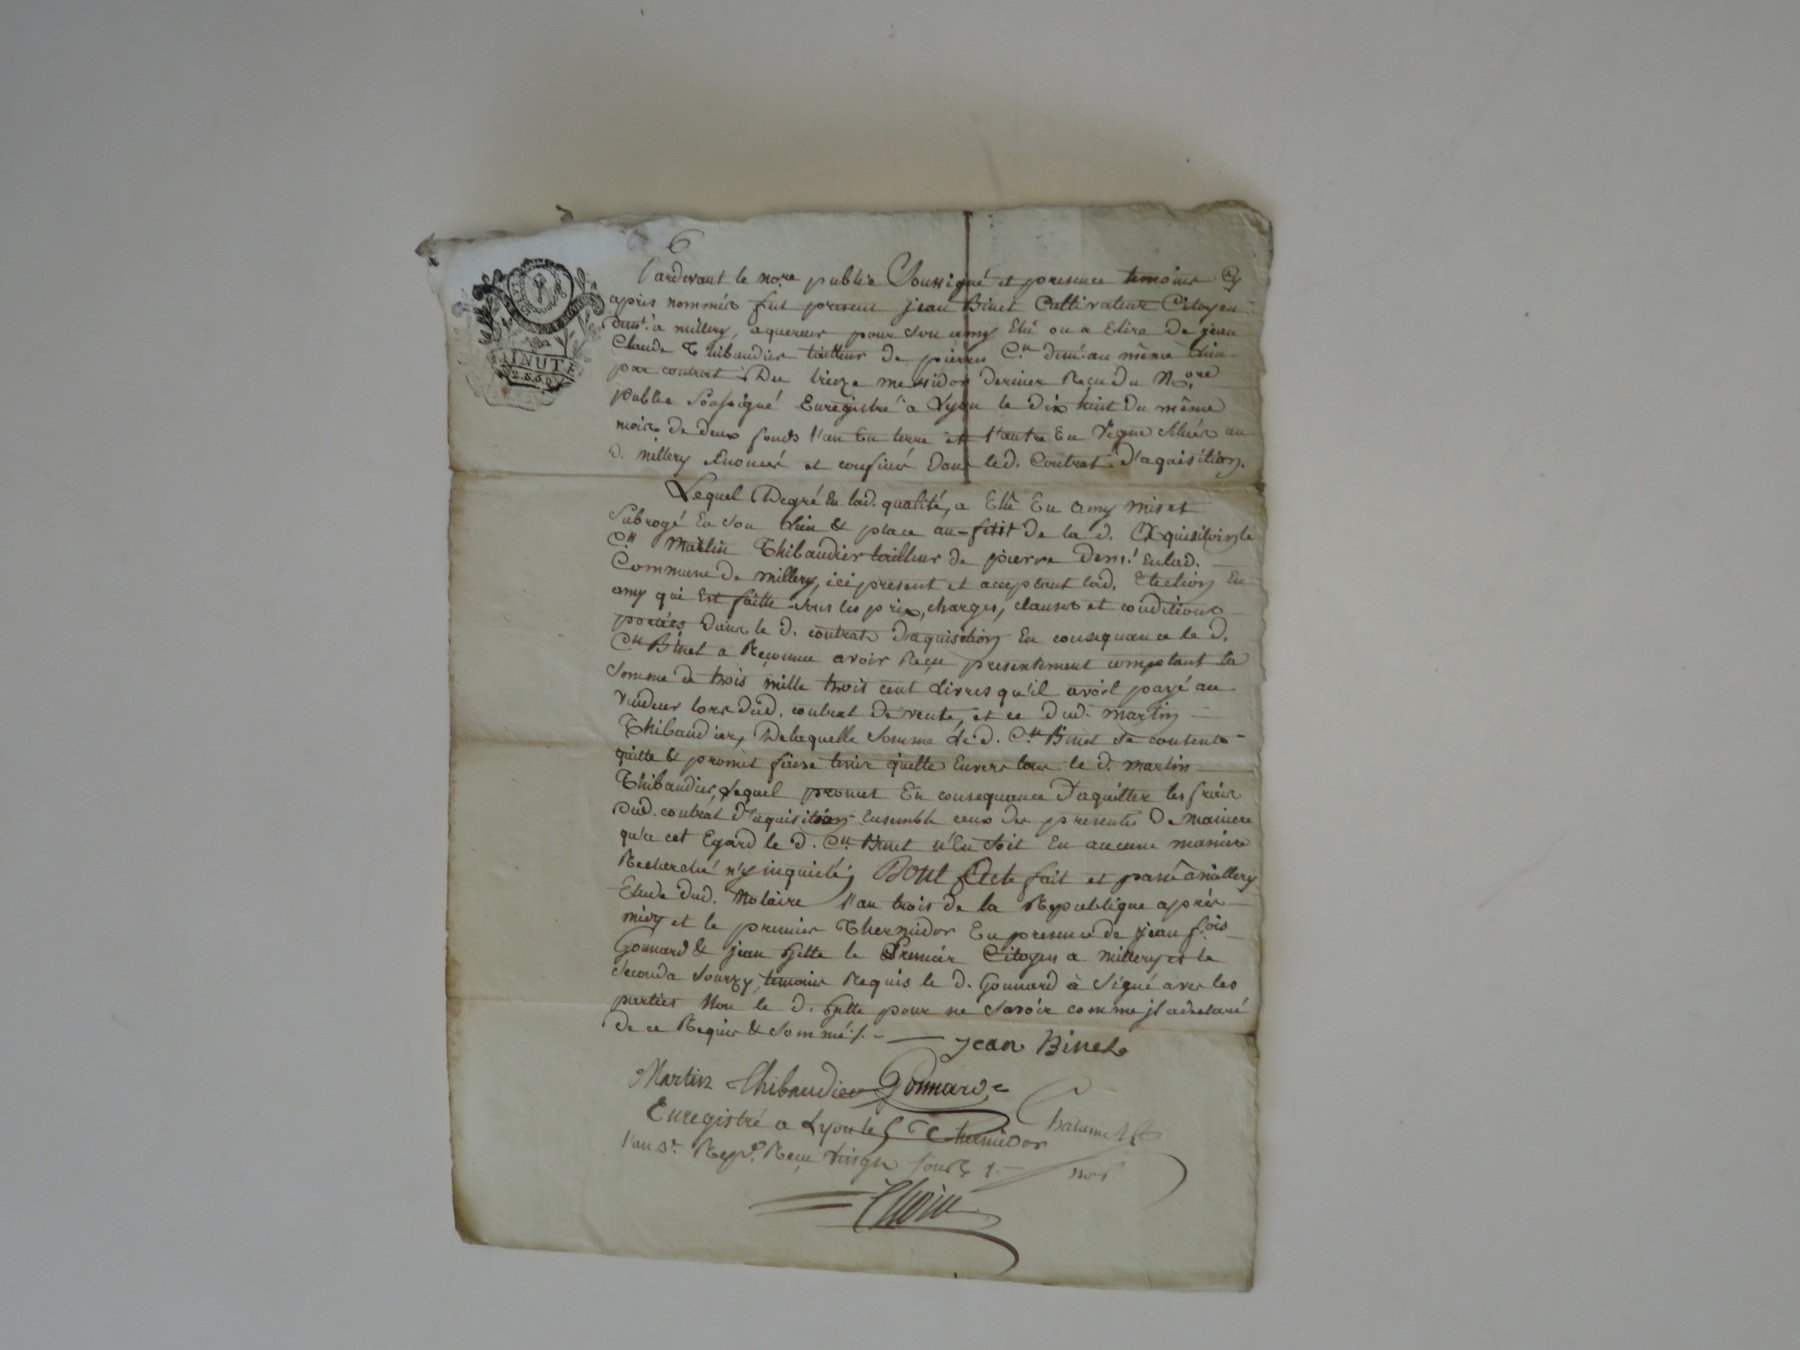 6
MINUTE
Pardevant le no.re public Soussigné et presence temoins Cy
après nommés fut present jean Binet Cultivateur Citoyen
dem.t à millery, aquereur pour son amy Elû ou a Elire De jean
Claude Thibaudier tailleur de pierres C.en dem.t au même Lieu
par contrat Du treize messidor dernier Reçu du N.ore
public Soussigné Enregistré a Lyon le dix huit Du même
mois de deux fonds l'un En terre et l'autre En Vigne Situés au
d. millery Enoncés et confinés Dans led. Contrat D'aquisition.
Lequel Degré En lad. qualité, a Elû En amy mis et
Subrogé En Son Lieu & place au de la d. aquisition le
C.en Martin Thibaudier tailleur de pierre Dem.t En lad.
Commune de millery, ici present et acceptant lad. Election En
amy qui Est faitte sous les prix, charges, clauses et conditions
portées Dans le d. contrat D'aquisition En consequance le d.
C.en Binet a Reconnu avoir Reçu presentement comptant la
Somme de trois mille trois cent Livres qu'il avoit payé au
Vendeur lors dud. contrat de vente, et ce Dud. martin
Thibaudier, De laquelle Somme le d. C.en Binet se contente
quitte & promet faire tenir quitte Envers tous le d. martin
Thibaudier, Lequel promet En consequance D'aquitter les frais
Dud. contrat D'aquisition Ensemble ceux des presentes De maniere
qu'a cet Egard le d. C.en Binet n'En soit En aucune maniere
Recherché n'y inquieté, Dont Acte fait et passé à millery
Etude dud. Notaire l'an trois de la Republique après
midy et le premier Thermidor En presence de jean f.ois
Gonnard & jean le Premier Citoyen a millery et le
Second a Sourzy, temoins Requis le d. Gonnard à Signé avec les
parties Non le d. pour ne Savoir comme jl a declaré
de ce Requis & Sommé /. -
jean Binet
Martin Thibaudier Gonnard
Enregistré a Lyon le 5 Thermidor
l'an 3.e Rep.e Reçu Vingt Sous
not